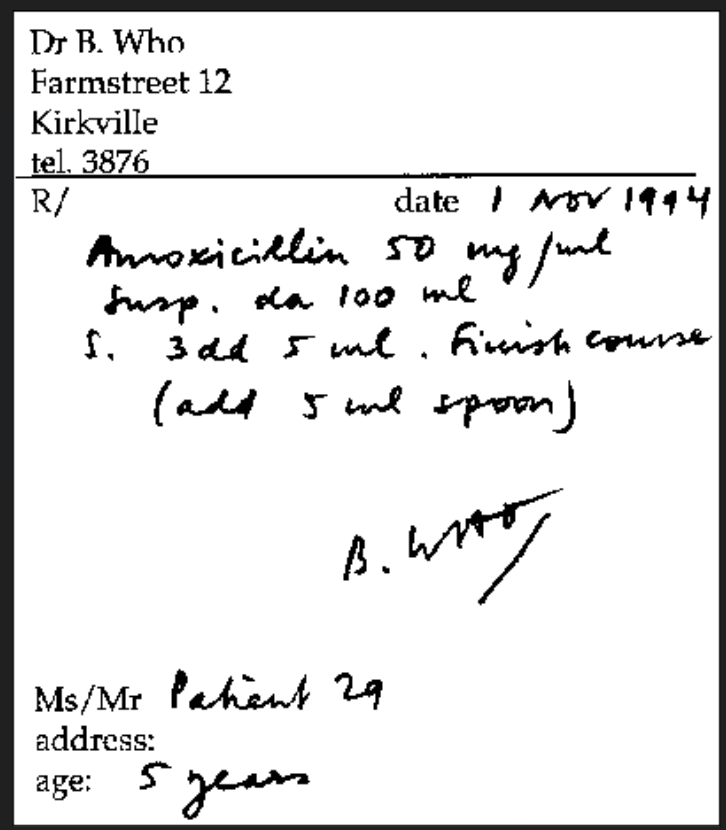 Dr B. Who
Farmstreet 12
Kirkville
tel. 3876
R/ date 1 Nov 1994
Amoxicillin 50 mg/ml
Susp. da 100 ml
S. 3dd 5 ml. Finish course
(add 5 ml spoon)
B. Who
Ms/Mr Patient 29
address:
age: 5 years